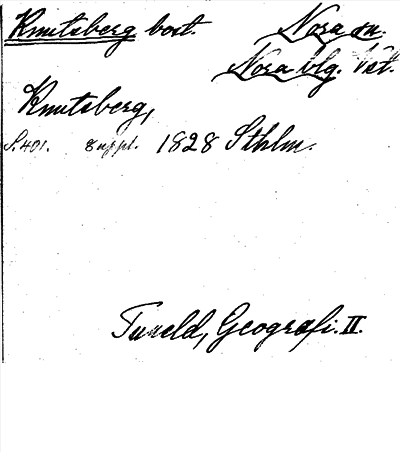 Knutsberg bost. Nora sn.
Nora blg. Väst.
Knutsberg,
S. 401. suppl. 1828 Sthlm.
Tuneld, Geografi. II.